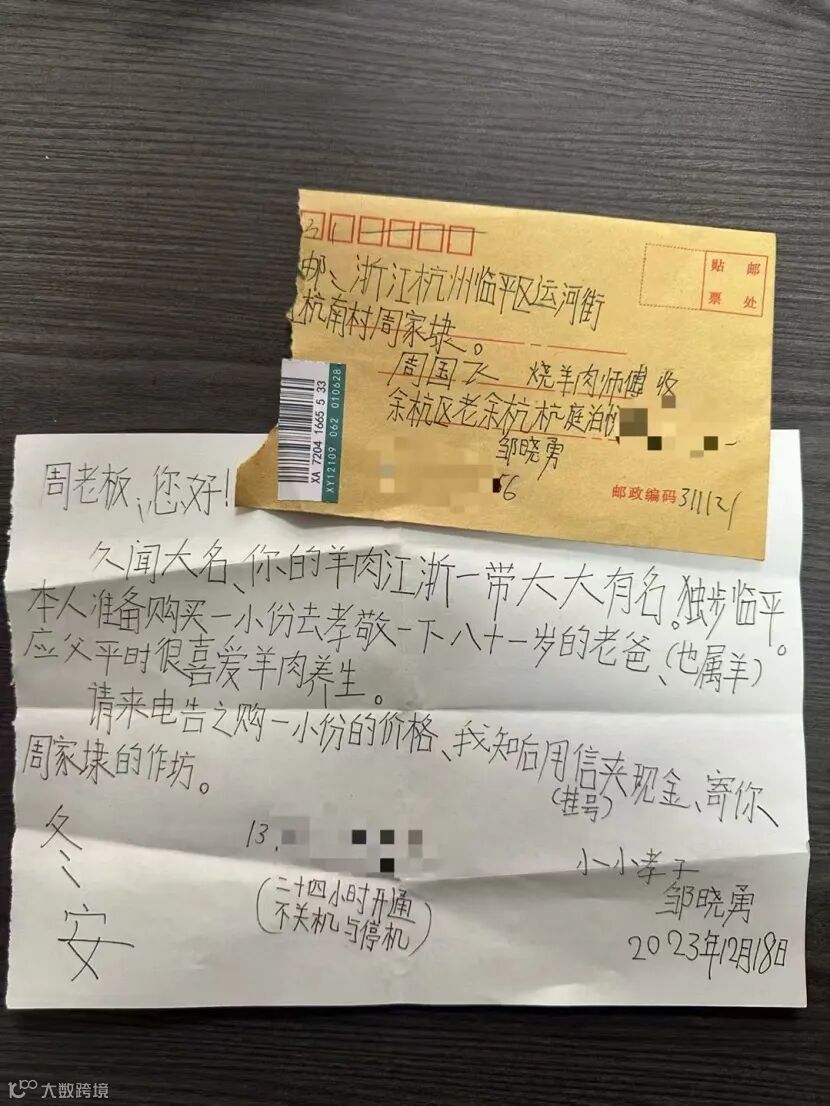 31
贴 邮
票 处
邮：浙江杭州临平区运河街
杭南村周家埭。
周国飞 烧羊肉师傅 收
余杭区老余杭杭庭泊悦
邹晓勇
56
邮政编码 311121
XA 7204 1665 5 33
XY12109 062 010628
周老板、您好!
久闻大名、你的羊肉江浙一带大大有名。独步临平。
本人准备购买一小份去孝敬一下八十一岁的老爸、(也属羊)
应父平时很喜爱羊肉养生。
请来电告之购一小份的价格、我知后用信夹现金、寄你
(挂号)
周家埭的作坊。
冬安
13.
(二十四小时开通
不关机与停机)
小小孝子
邹晓勇
2023年12月18日
大数跨境